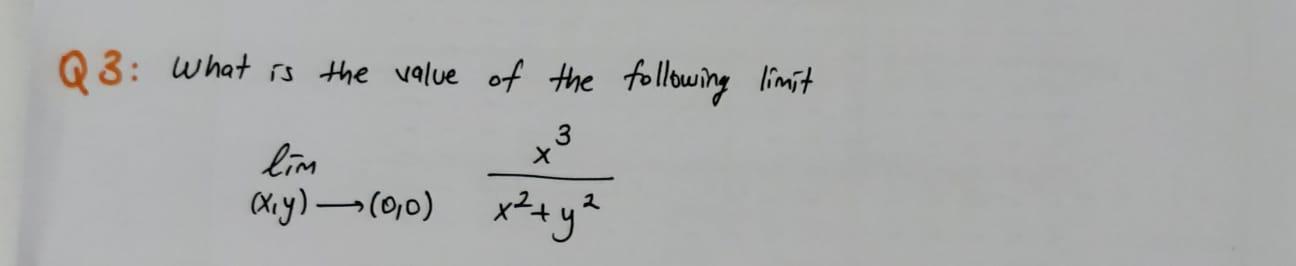 Q3: What is the value of the following limit
lim
(x,y)→(0,0)
x³
x²+y²